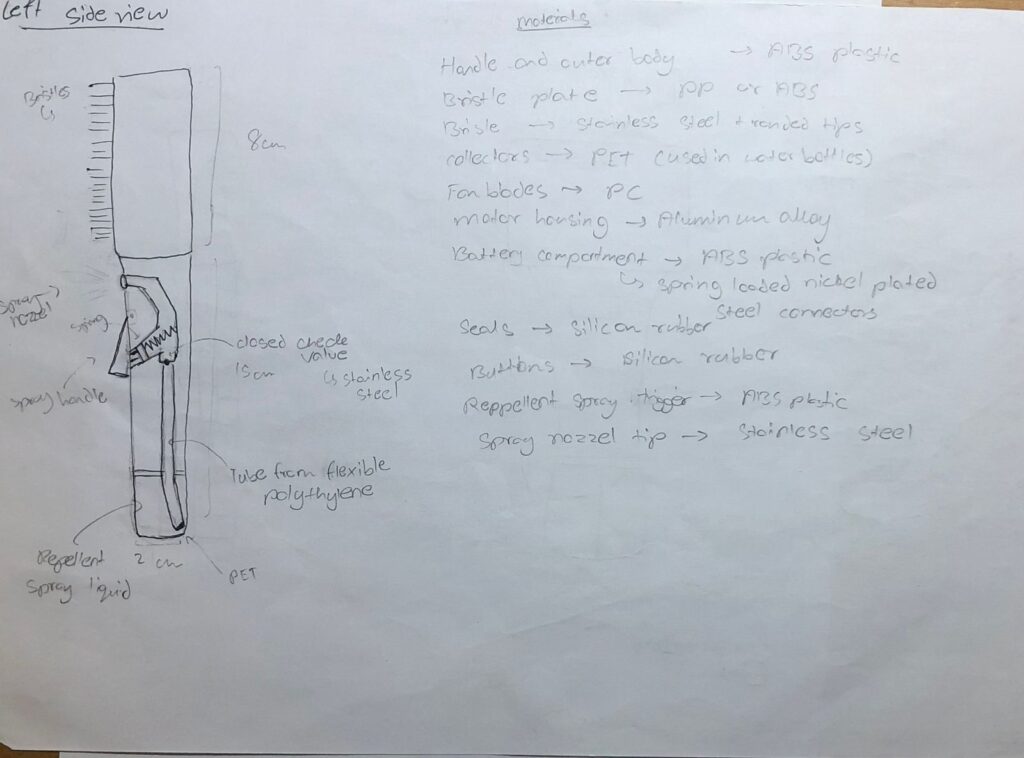 Left side view
Bristles
8cm
Spray nozzel
spring
Spray handle
closed check
valve
↳ stainless
steel
15cm
Tube from flexible
polythylene
Repellent
Spray liquid
2 cm
PET
materials
Handle and outer body → ABS plastic
Bristle plate → PP or ABS
Brisle → stainless steel + ronded tips
collectors → PET (used in water bottles)
Fan blades → PC
motor housing → Aluminum alloy
Battery compartment → ABS plastic
↳ spring loaded nickel plated
steel connectors
Seals → silicon rubber
Buttons → silicon rubber
Reppellent spray trigger → ABS plastic
Spray nozzel tip → stainless steel